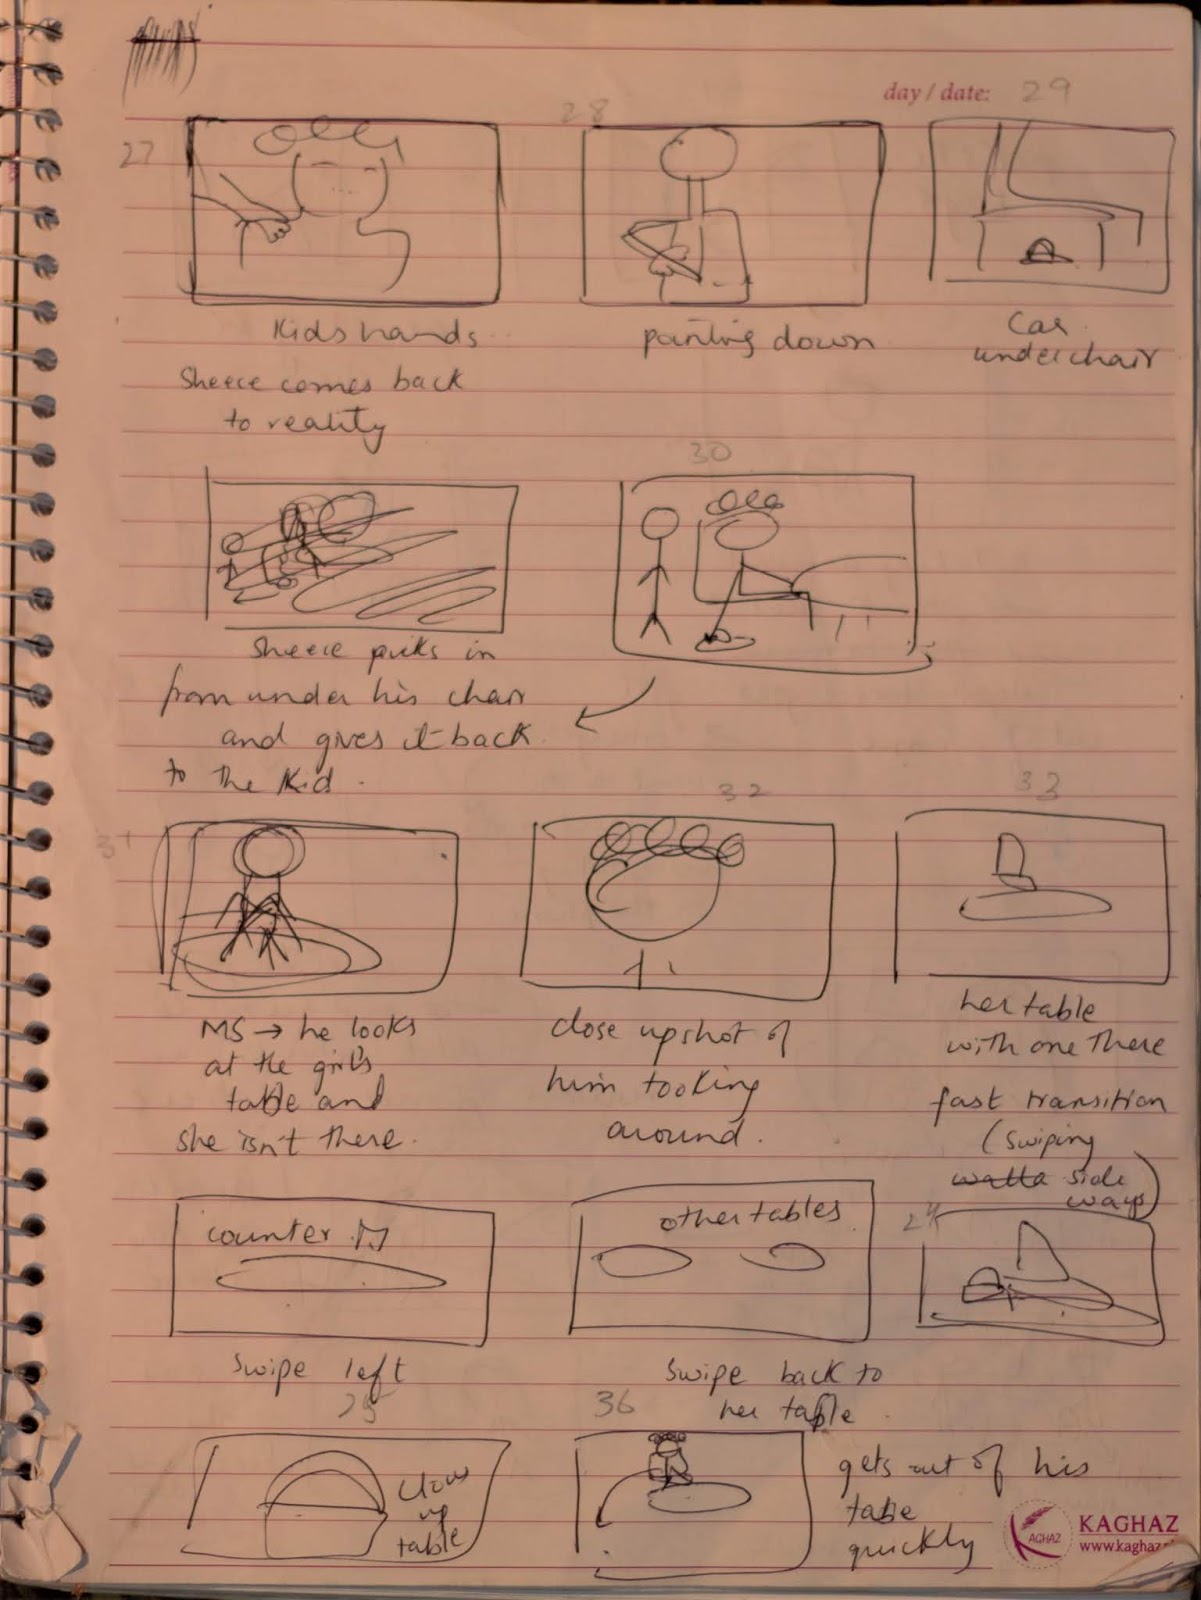 day / date: 29
27
28
Kids hands
pointing down
Car
under chair
Sheece comes back
to reality
30
Sheece picks in
from under his chair
and gives it back
to the Kid.
31
32
33
MS → he looks
at the girl's
table and
she isn't there.
close up shot of
him looking
around.
her table
with one there
fast transition
(swiping
side
ways)
counter
other tables
24
swipe left
swipe back to
her table
25
36
close
up
table
gets out of his
table
quickly
AGHAZ
KAGHAZ
www.kaghaz